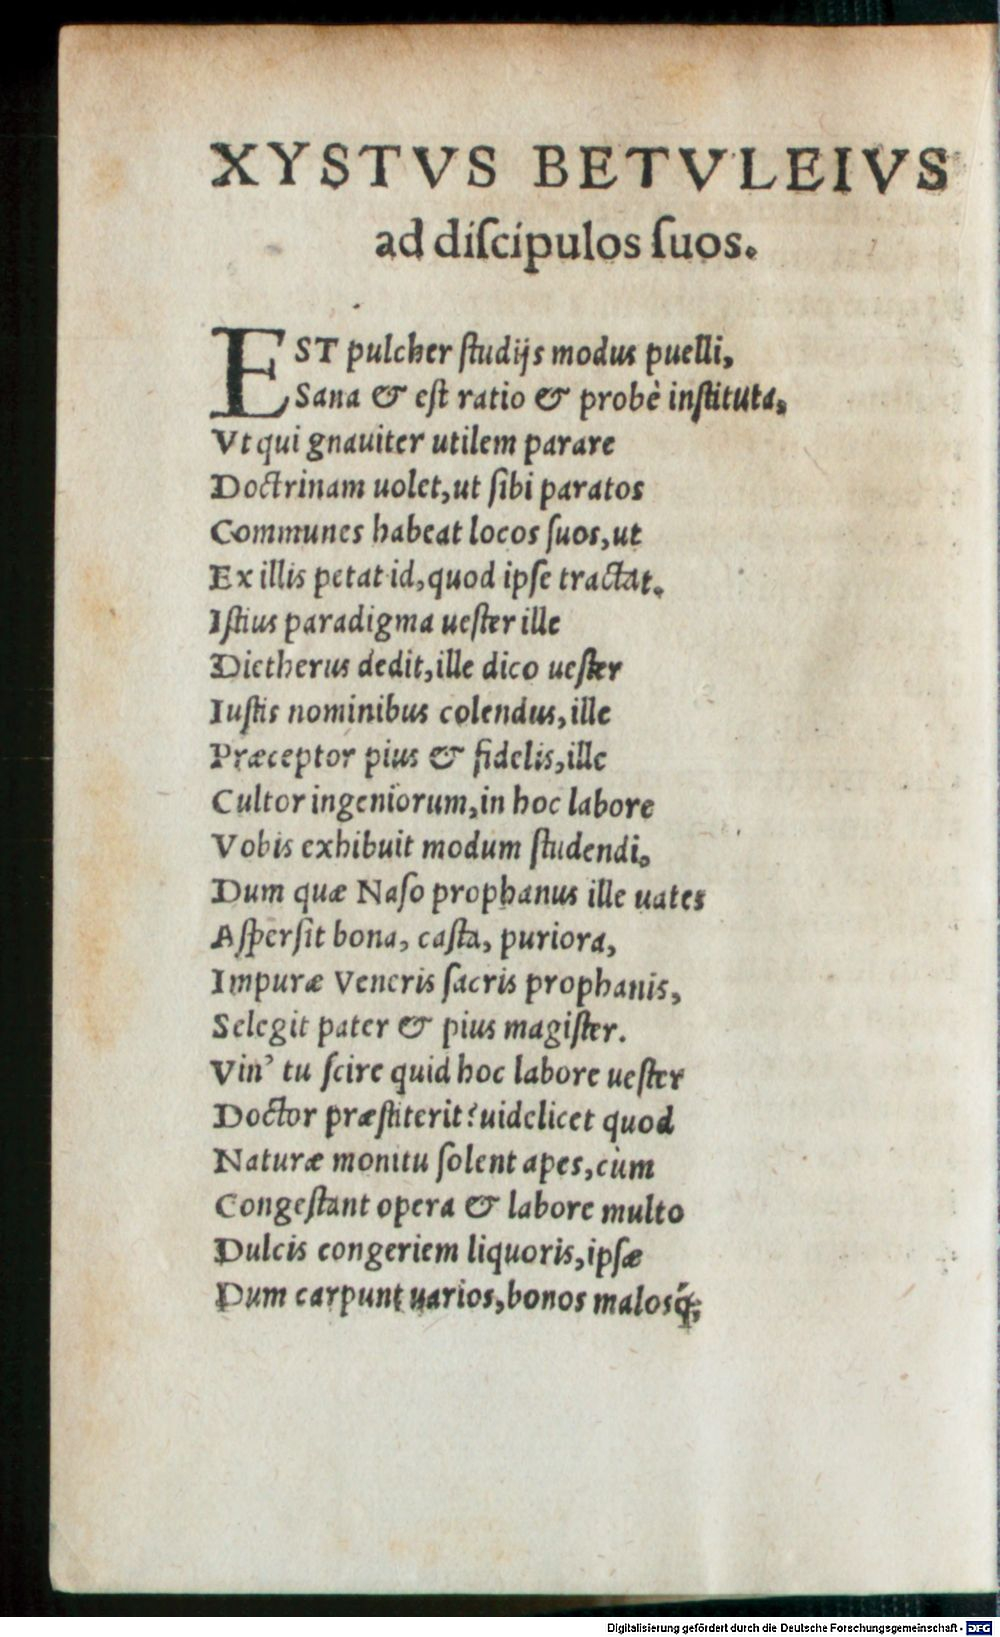 XYSTVS BETVLEIVS
ad diſcipulos ſuos.
EST pulcher ſtudijs modus puelli,
Sana & eſt ratio & probè inſtituta,
Vt qui gnauiter utilem parare
Doctrinam uolet, ut ſibi paratos
Communes habeat locos ſuos, ut
Ex illis petat id, quod ipſe tractat.
Iſtius paradigma ueſter ille
Dietherus dedit, ille dico ueſter
Iuſtis nominibus colendus, ille
Præceptor pius & fidelis, ille
Cultor ingeniorum, in hoc labore
Vobis exhibuit modum ſtudendi.
Dum quæ Naſo prophanus ille uates
Aſperſit bona, caſta, puriora,
Impuræ Veneris ſacris prophanis,
Selegit pater & pius magiſter.
Vin' tu ſcire quid hoc labore ueſter
Doctor præſtiterit? uidelicet quod
Naturæ monitu ſolent apes, cùm
Congeſtant opera & labore multo
Dulcis congeriem liquoris, ipſæ
Dum carpunt uarios, bonos malosq́;
Digitalisierung gefördert durch die Deutsche Forschungsgemeinschaft - DFG